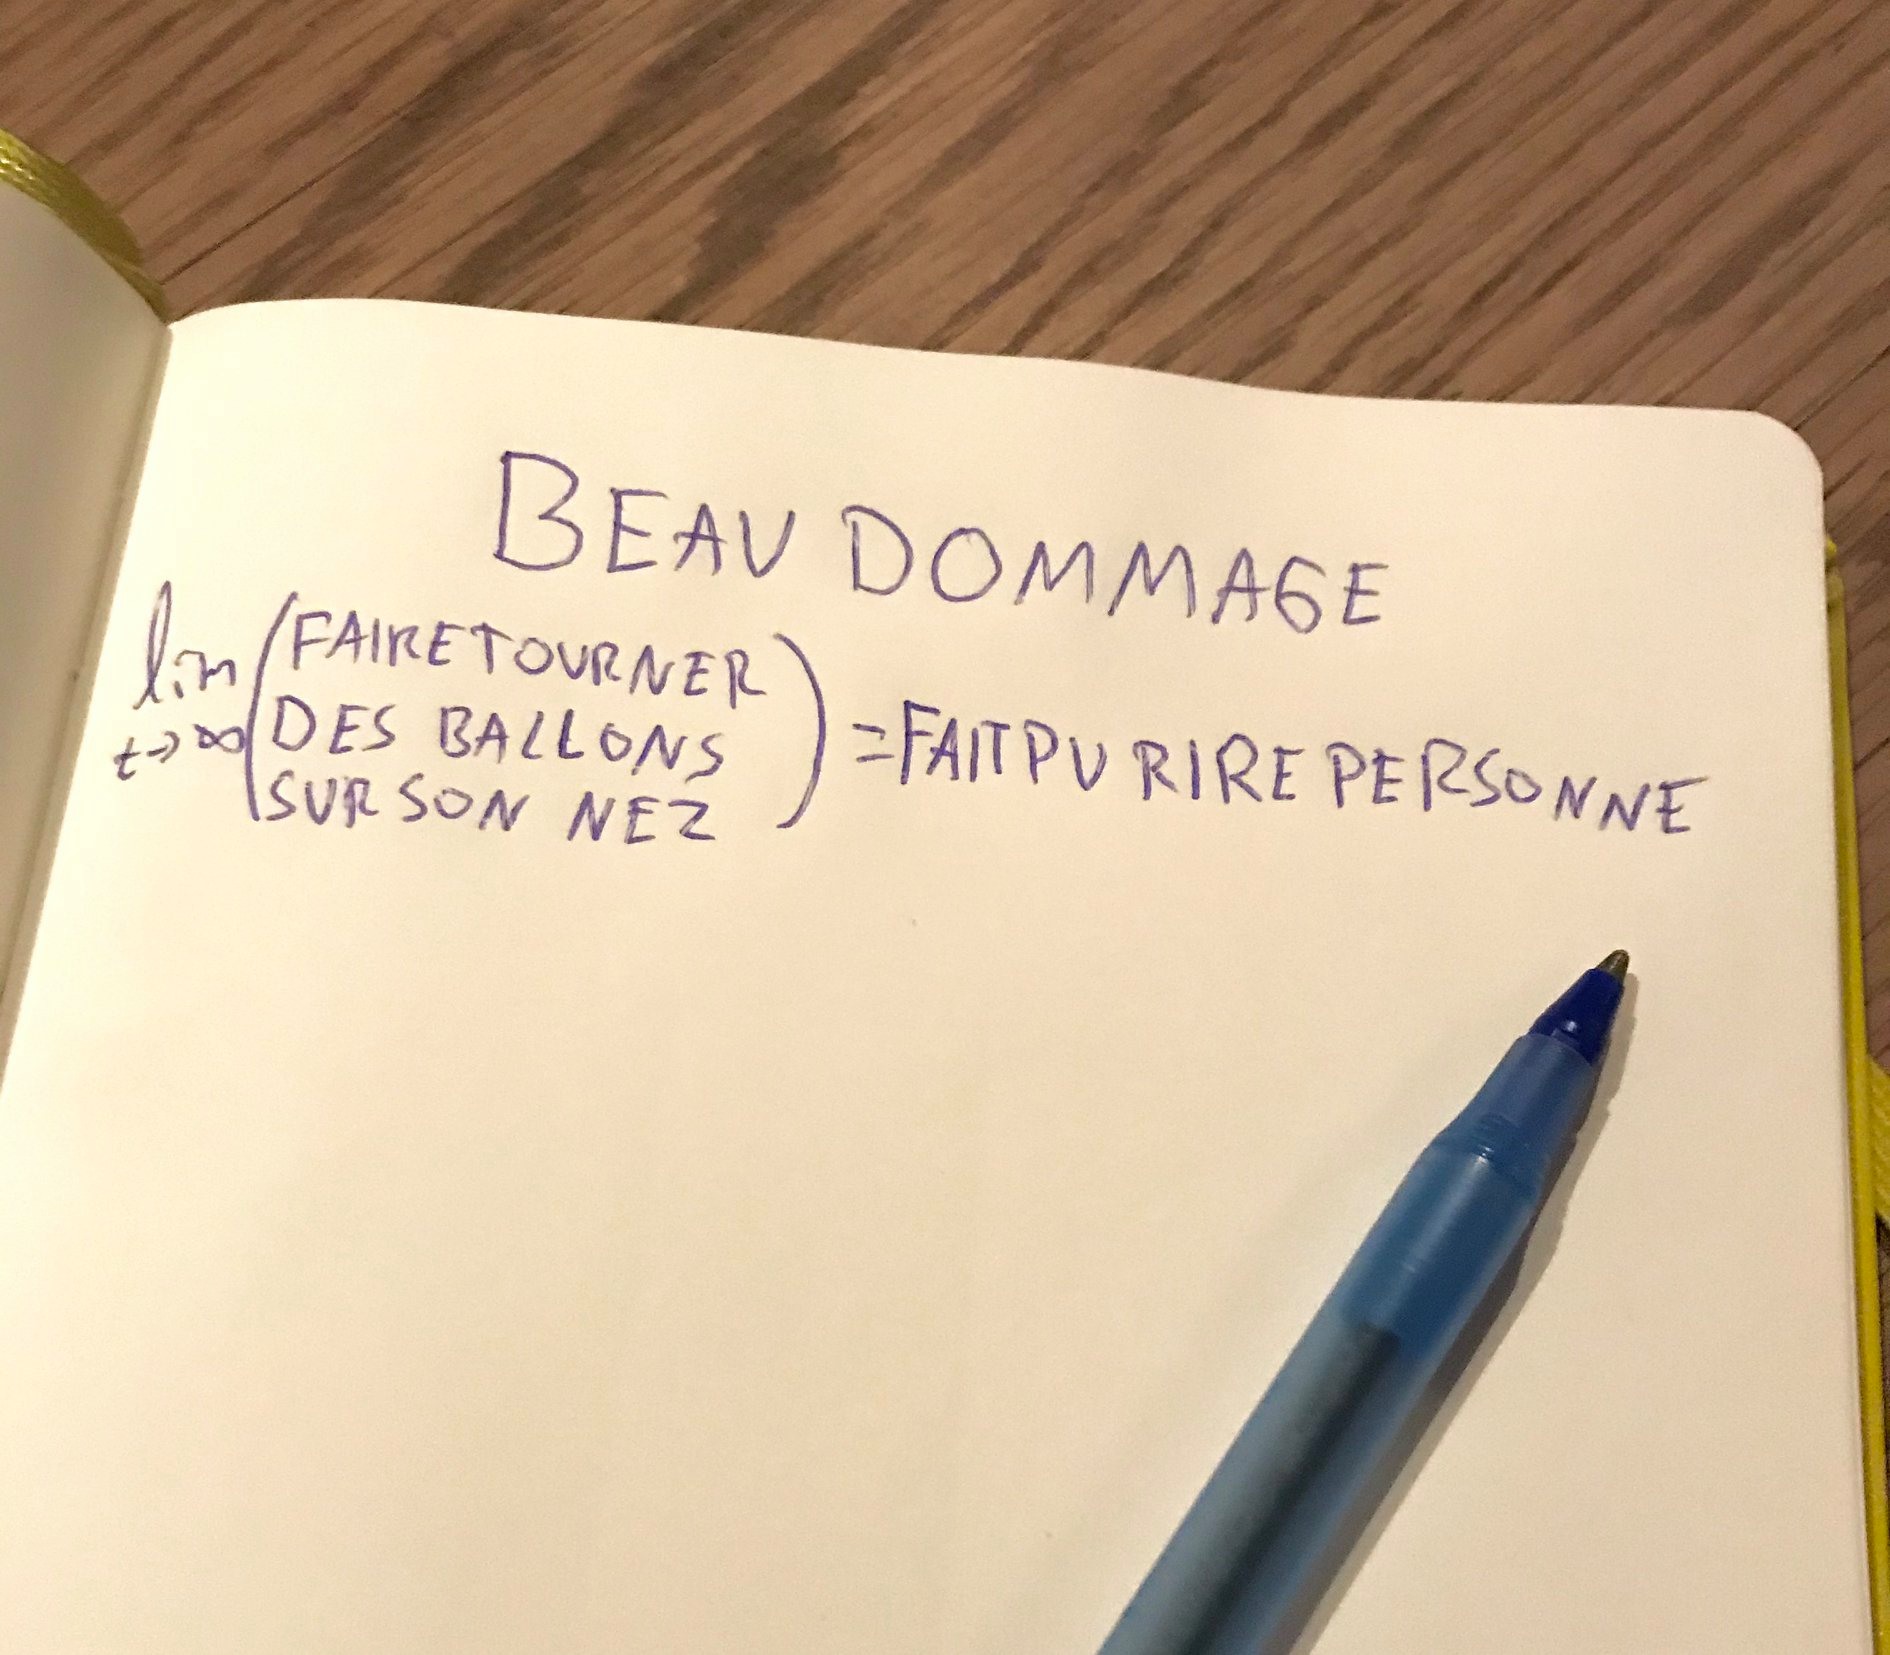 BEAU DOMMAGE
lim (FAIRE TOURNER
t→∞ DES BALLONS
SUR SON NEZ) = FAIT PU RIRE PERSONNE